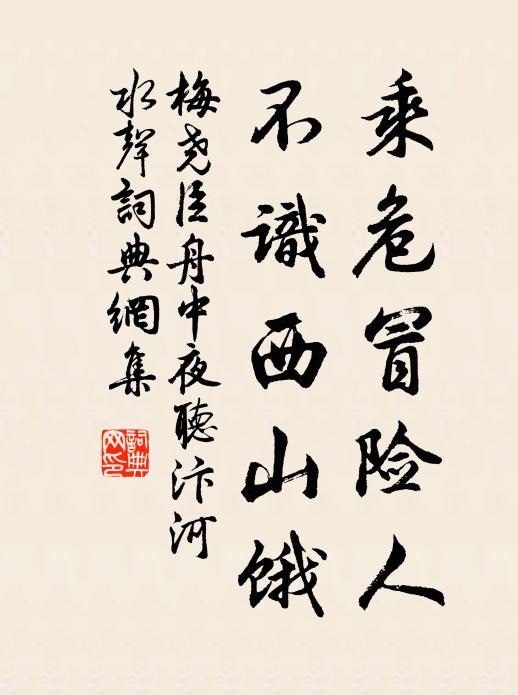 乘危冒险人
不識西山饿
梅尧臣舟中夜聽汴河
水聲詞典網集
詞典
网印